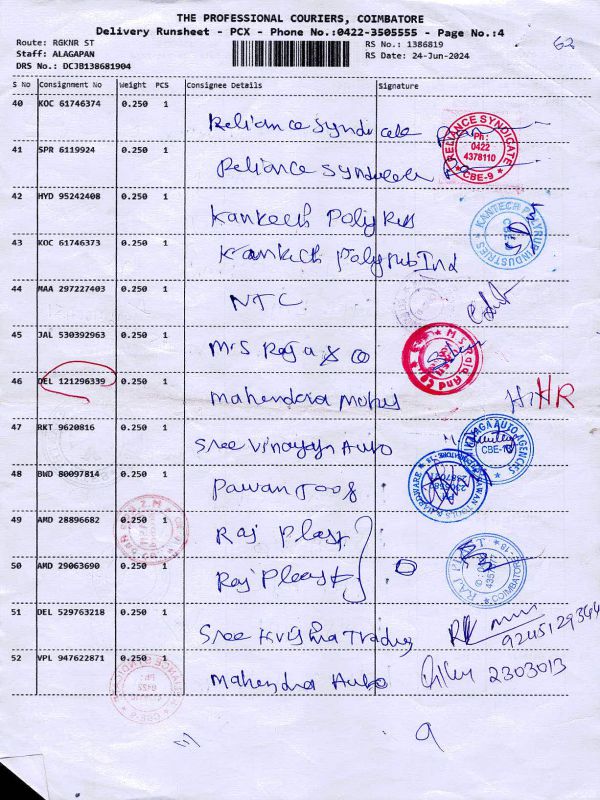 THE PROFESSIONAL COURIERS, COIMBATORE
Delivery Runsheet - PCX - Phone No.:0422-3505555 - Page No.:4
62
Route: RGKNR ST
RS No.: 1386819
Staff: ALAGAPAN
RS Date: 24-Jun-2024
DRS No.: DCJB138681904
S No Consignment No Weight PCS Consignee Details Signature
40 KOC 61746374 0.250 1 Reliance Syndicate
RELIANCE SYNDICATE Ph : 0422 4378110 CBE-9
41 SPR 6119924 0.250 1 Reliance Syndicate
42 HYD 95242408 0.250 1 Kantech Poly
KANTECH POLYRUB INDUSTRIES
43 KOC 61746373 0.250 1 Kantech Polyrub Ind
44 MAA 297227403 0.250 1 NTC
45 JAL 530392963 0.250 1 M.S Raja & Co
46 DEL 121296339 0.250 1 Mahendra HR
47 RKT 9620816 0.250 1 Sree Vinayaga Auto
VINAYAGA AUTO AGENCIES
48 BWD 80097814 0.250 1 Pawan Tools
49 AMD 28896682 0.250 1 Raj Plast
50 AMD 29063690 0.250 1 Raj Plast
RAJ PLAST COIMBATORE
51 DEL 529763218 0.250 1 Sree Krishna Trading
9245129344
52 VPL 947622871 0.250 1 Mahendra Auto 2303013
9